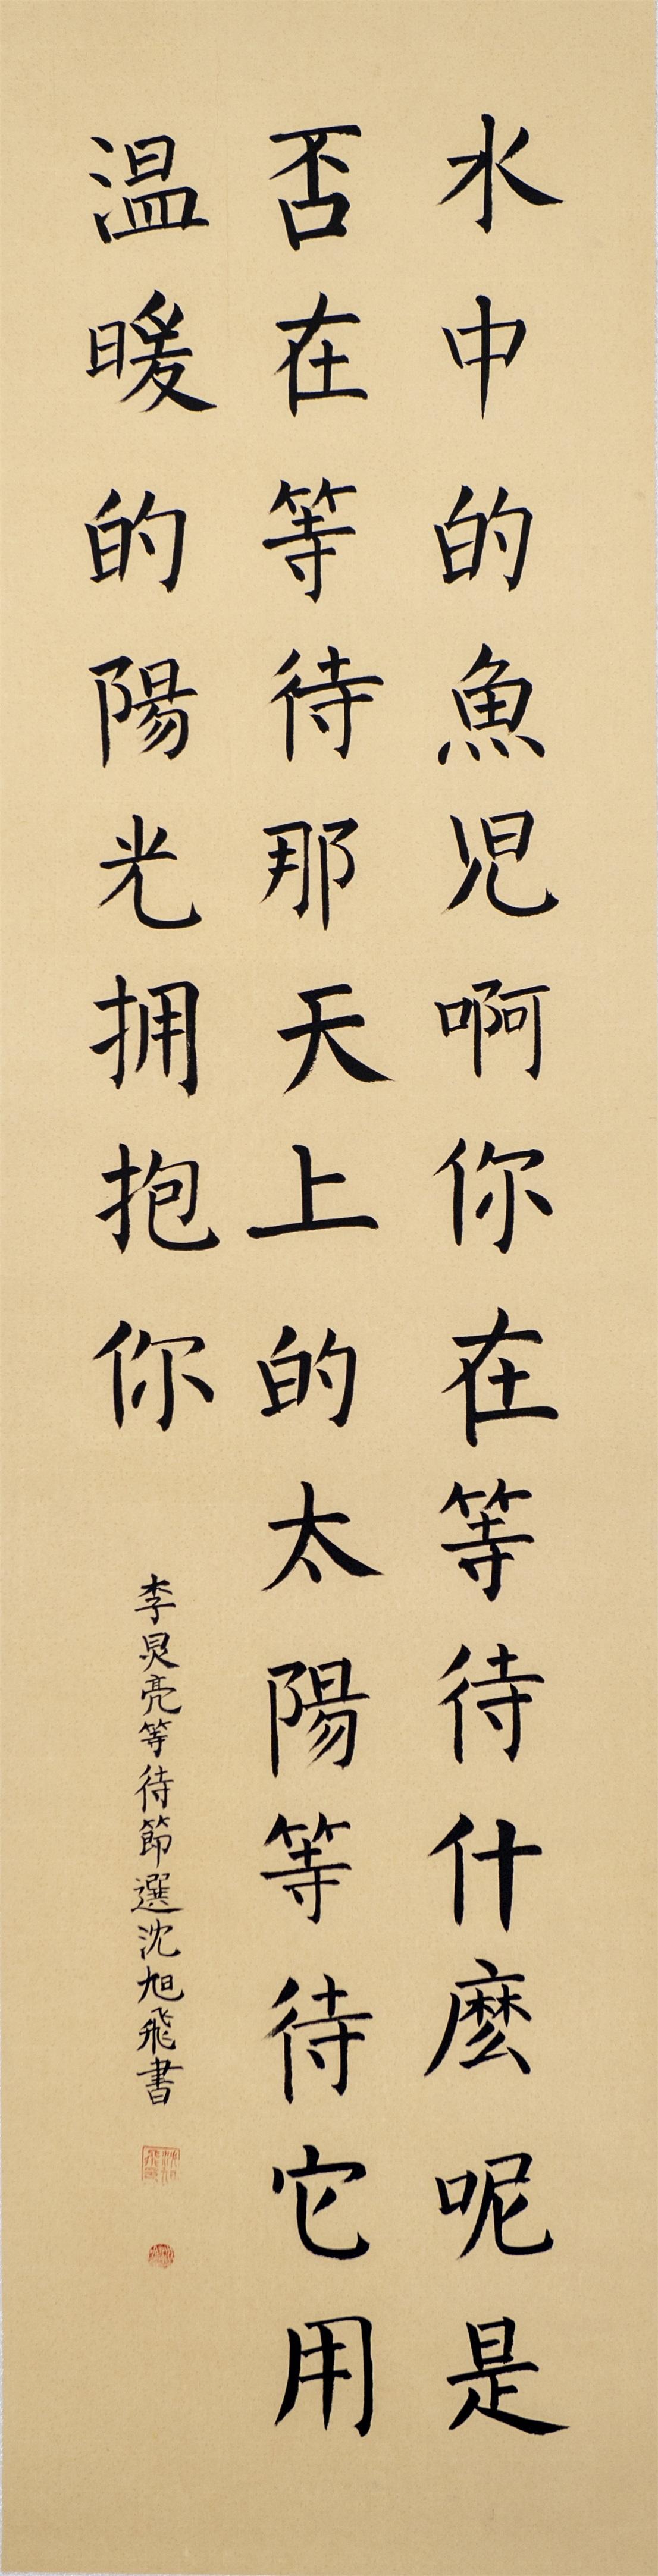 水中的魚児啊你在等待什麽呢是
否在等待那天上的太陽等待它用
温暖的陽光拥抱你
李炅亮等待節選沈旭飛書